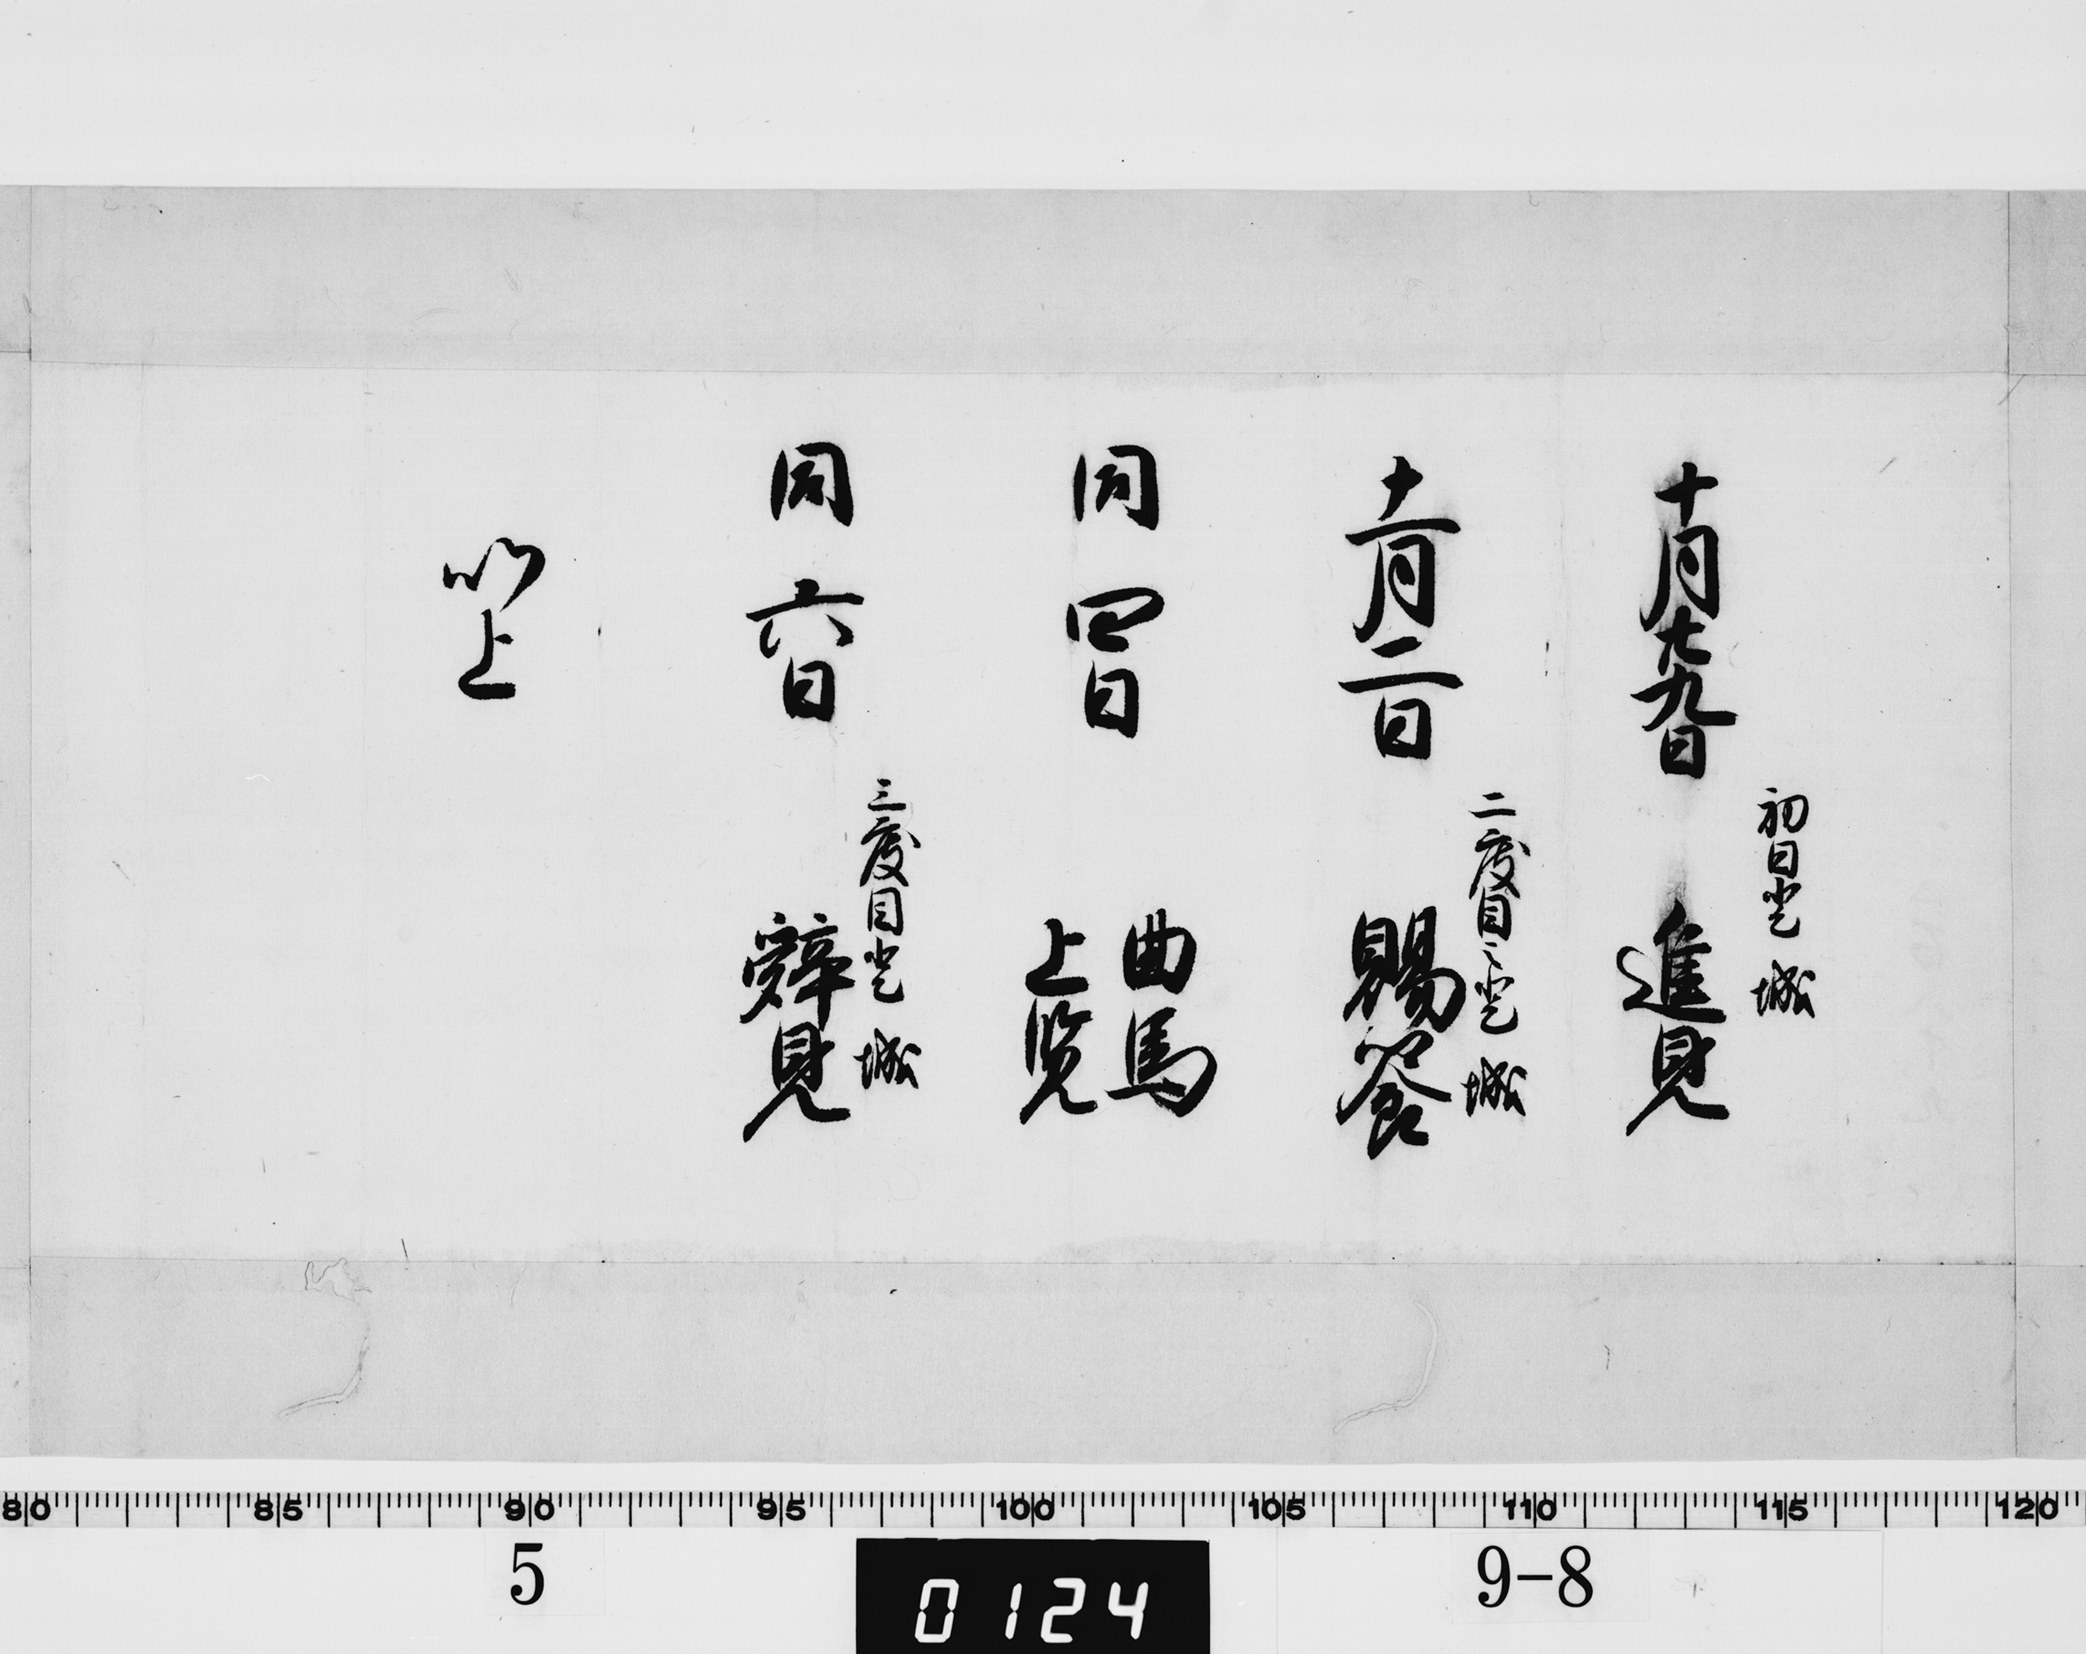 初日登 城
十月廿九日 進見
二度目之登 城
十一月二日 賜饗
同 四日 曲馬
上覧
三度目登 城
同 六日 辭見
以上
80 85 90 95 100 105 110 115 120
5 0124 9-8